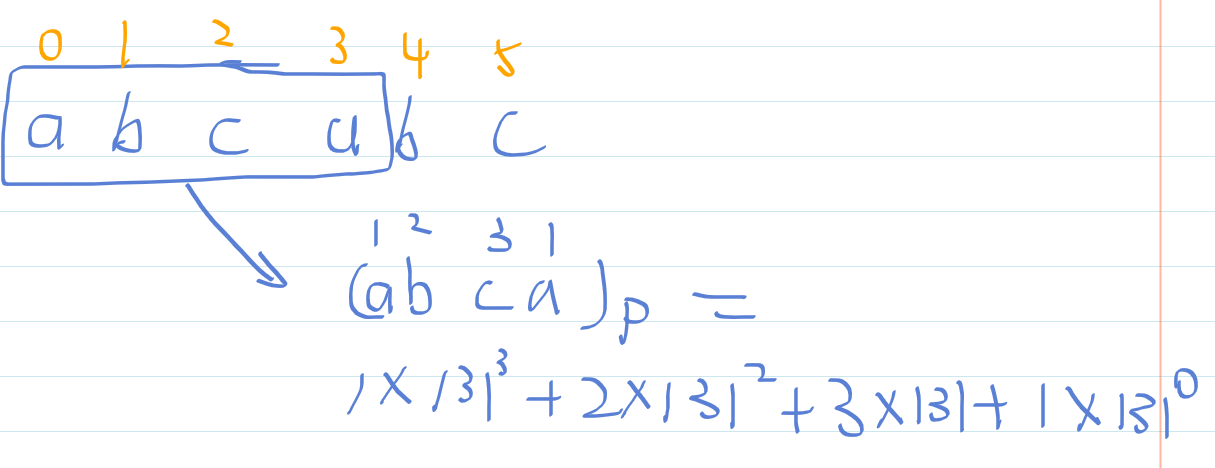 0 1 2 3 4 5
a b c a b c
1 2 3 1
(ab ca)p =
1×131³+2×131²+3×131+1×131⁰